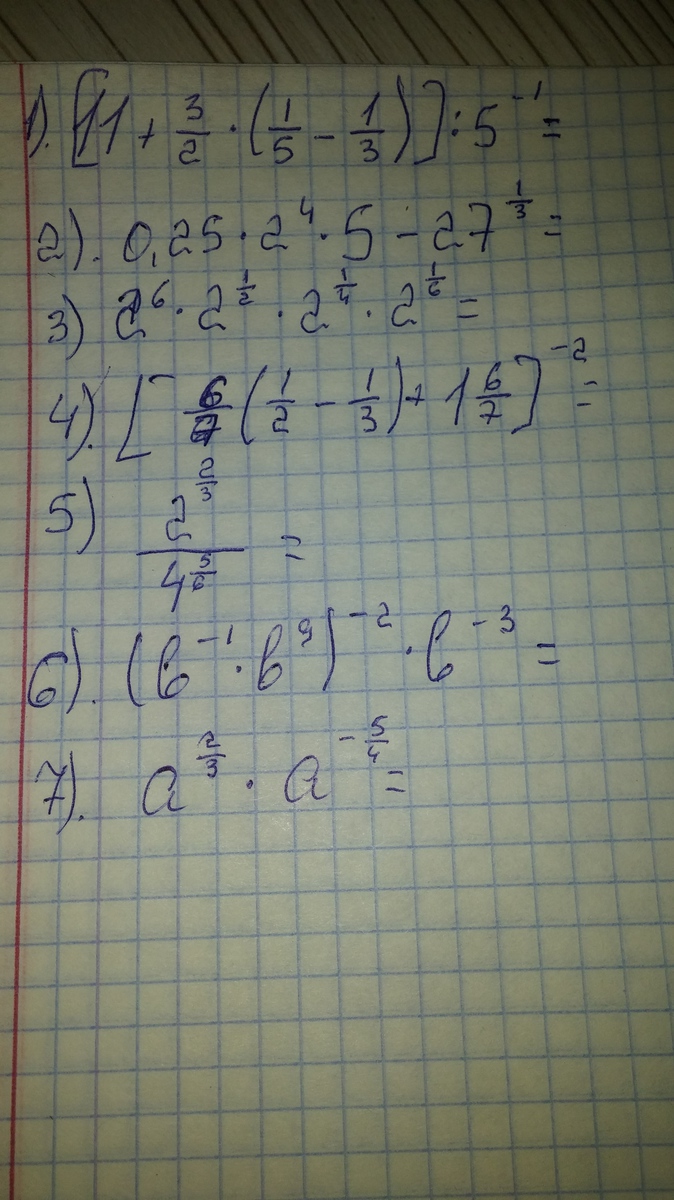 1). [11 + 3/2 · (1/5 - 1/3)] : 5^-1 =
2). 0,25 · 2^4 · 5 - 27^1/3 =
3) 2^6 · 2^1/2 · 2^1/4 · 2^1/6 =
4). [ 6/7 (1/2 - 1/3) + 1 6/7 ]^-2 =
5) 2^2/3 / 4^5/6 =
6). (b^-1 · b^9)^-2 · b^-3 =
7). a^2/3 · a^-5/4 =